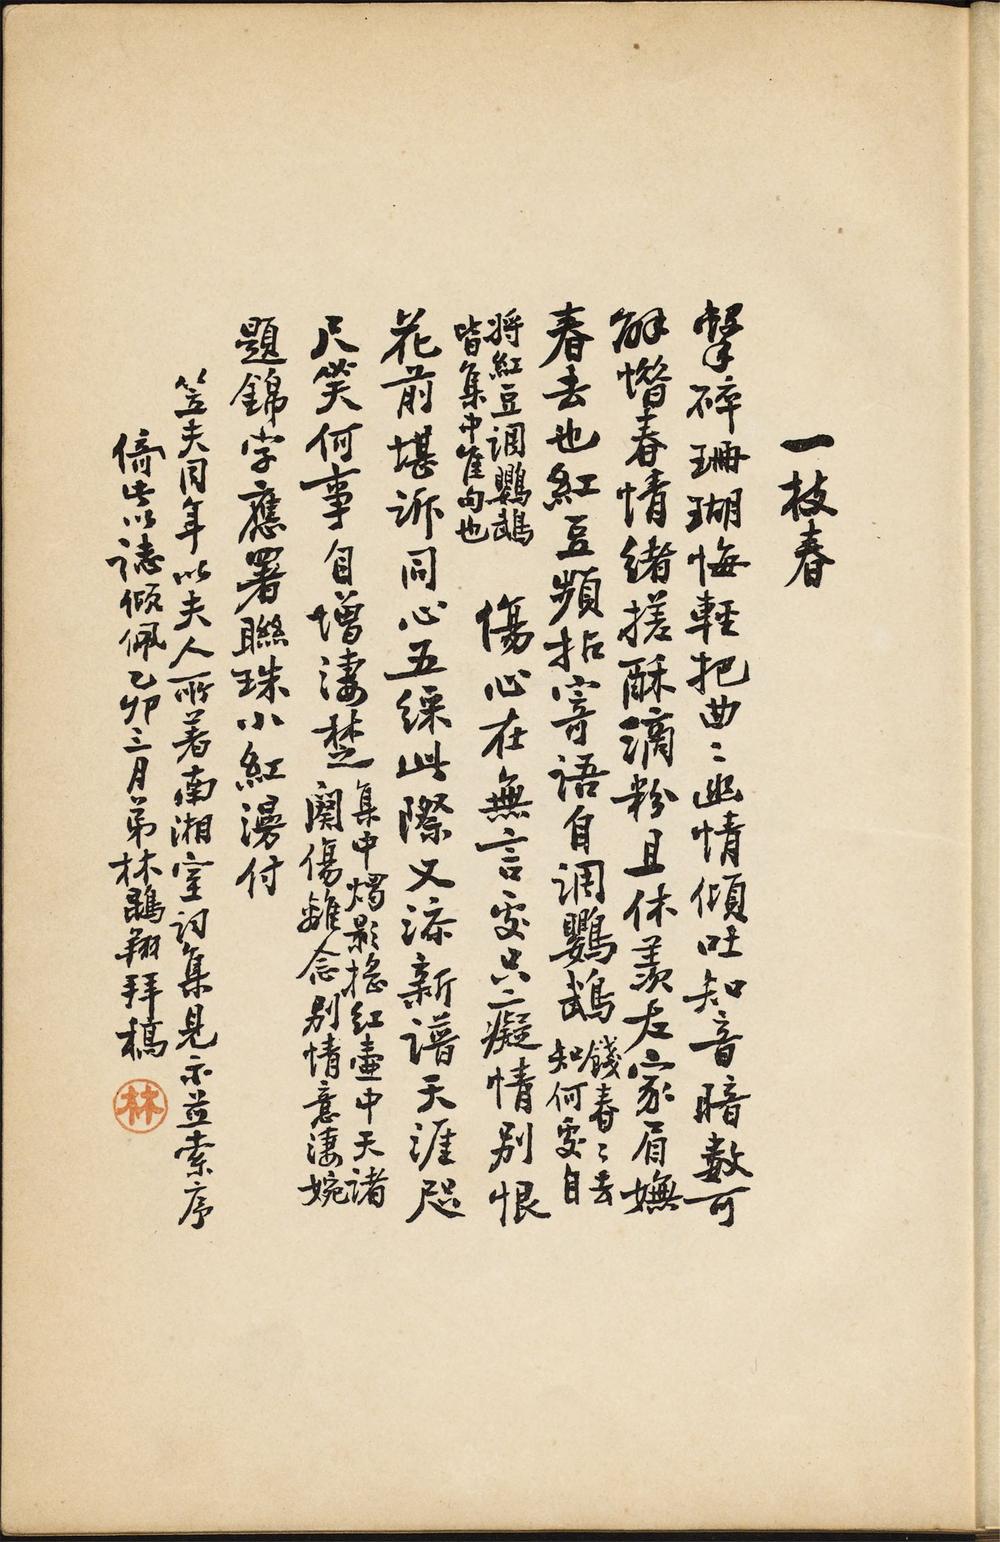 一枝春
擊碎珊瑚悔輕把曲〻幽情傾吐知音暗數可
解惜春情緒搓酥滴粉且休羨左家眉嫵
春去也紅豆頻拈寄語自調鸚鵡餞春〻去
知何處自
將紅豆調鸚鵡
皆集中隹句也
傷心在無言處只〻癡情別恨
花前堪訴同心五綵此際又添新譜天涯咫
尺笑何事自增淒楚集中燭影搖紅壺中天諸
闋傷離念別情意淒婉
題錦字應署聯珠小紅漫付
笠夫同年以夫人所著南湘室詞集見示並索序
倚此以誌傾佩乙卯三月弟林鵾翔拜稿
林